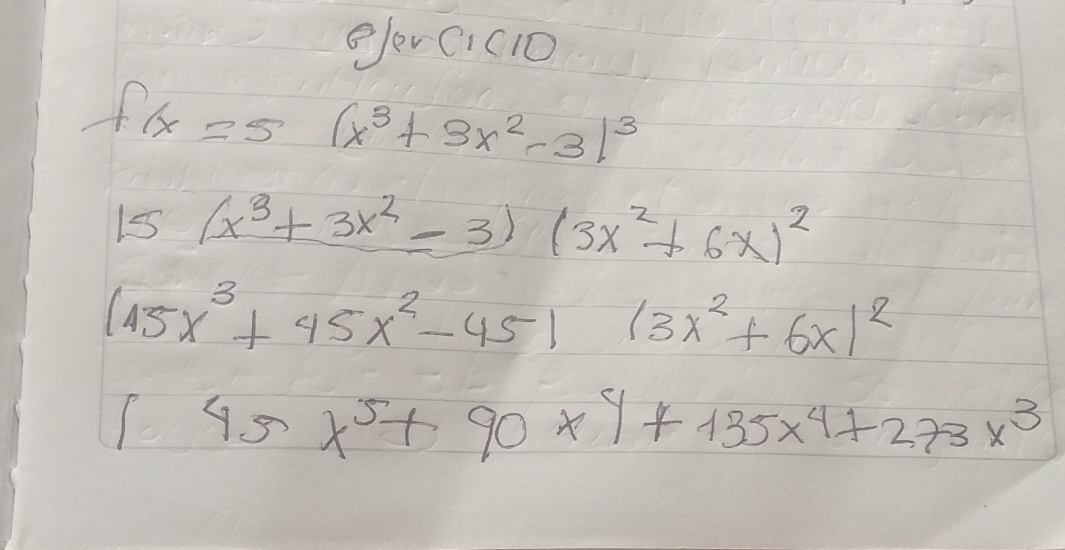 ejercicio
f(x = 5 (x³ + 3x² - 3)³
15 (x³ + 3x² - 3) (3x² + 6x)²
(15x³ + 45x² - 45) (3x² + 6x)²
( 45 x⁵ + 90 x⁴ + 135x⁴ + 273x³